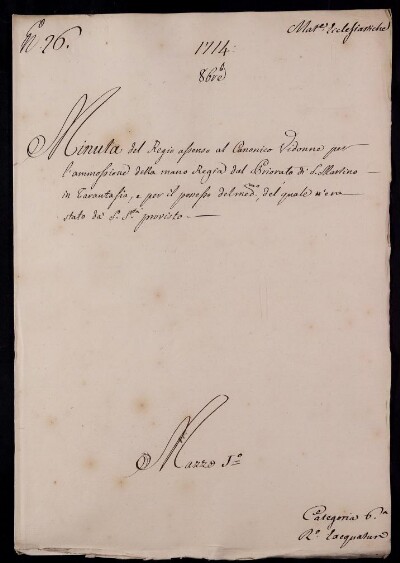 N.º 26.
Mat.e Ecclesiastiche
1714.
8bre
Minuta del Regio assenso al Canonico Vidonne per
l'ammossione della mano Regia dal Priorato di S. Martino
in Tarantasia, e per il possesso del med.mo, del quale n'era
stato da S. S.tà provisto.
Mazzo 1.º
Categoria 6.a